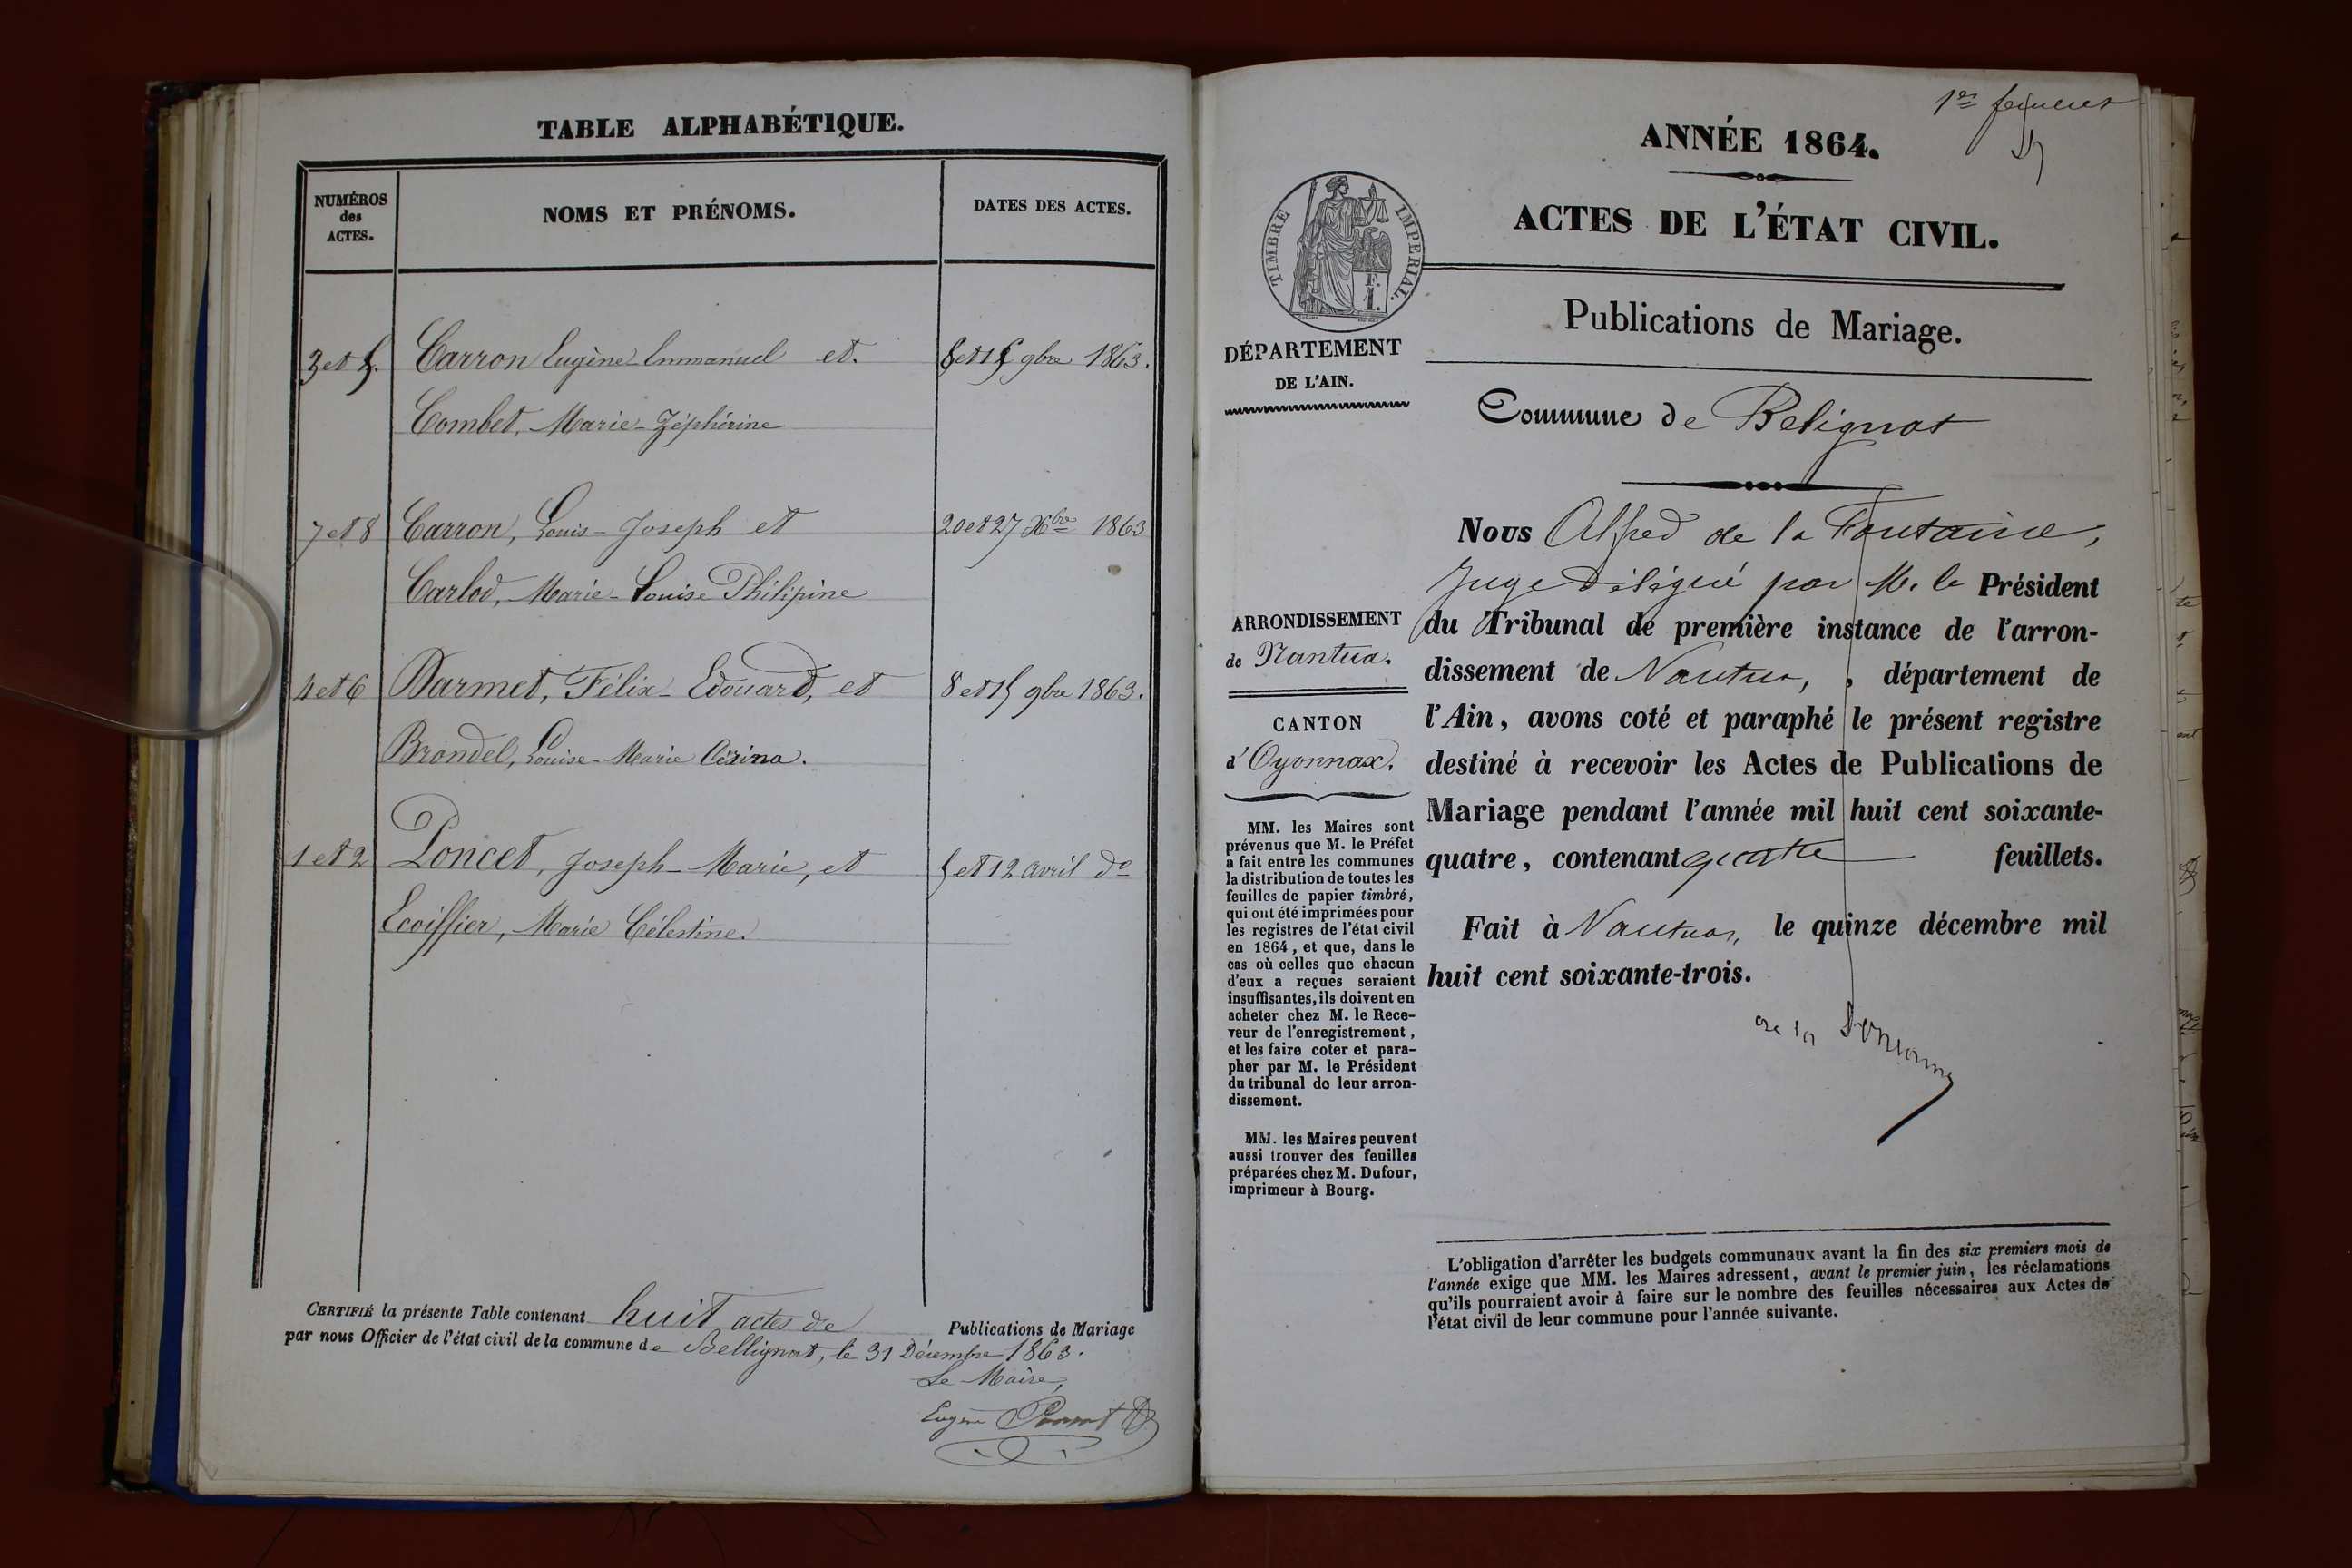 TABLE ALPHABÉTIQUE.
NUMÉROS
des
ACTES.
NOMS ET PRÉNOMS.
DATES DES ACTES.
3 et 5. Carron Eugène-Emmanuel et. 8 et 15 9bre 1863.
Combet, Marie-Zéphérine
7 et 8 Carron, Louis-Joseph et 20 et 27 Xbre 1863
Carlod, Marie-Louise Philipine
4 et 6 Darmet, Félix-Edouard, et 8 et 15 9bre 1863.
Brondel, Louise-Marie Césina.
1 et 2 Poncet, Joseph-Marie, et 5 et 12 avril do
Ecoiffier, Marie Célestine.
CERTIFIÉ la présente Table contenant huit actes de Publications de Mariage
par nous Officier de l'état civil de la commune de Bellignat, le 31 Décembre 1863.
Le Maire,
Eugène
1er
ANNÉE 1864.
ACTES DE L'ÉTAT CIVIL.
TIMBRE IMPERIAL.
F.
1.
Publications de Mariage.
DÉPARTEMENT
DE L'AIN.
Commune de Belignat
ARRONDISSEMENT
de Nantua.
CANTON
d'Oyonnax.
MM. les Maires sont
prévenus que M. le Préfet
a fait entre les communes
la distribution de toutes les
feuilles de papier timbré,
qui ont été imprimées pour
les registres de l'état civil
en 1864, et que, dans le
cas où celles que chacun
d'eux a reçues seraient
insuffisantes, ils doivent en
acheter chez M. le Rece-
veur de l'enregistrement,
et les faire coter et para-
pher par M. le Président
du tribunal de leur arron-
dissement.
MM. les Maires peuvent
aussi trouver des feuilles
préparées chez M. Dufour,
imprimeur à Bourg.
Nous Alfred de la Fontaine,
Juge délégué par M. le Président
du Tribunal de première instance de l'arron-
dissement de Nantua, , département de
l'Ain, avons coté et paraphé le présent registre
destiné à recevoir les Actes de Publications de
Mariage pendant l'année mil huit cent soixante-
quatre, contenant quatre feuillets.
Fait à Nantua, le quinze décembre mil
huit cent soixante-trois.
de la
L'obligation d'arrêter les budgets communaux avant la fin des six premiers mois de
l'année exige que MM. les Maires adressent, avant le premier juin, les réclamations
qu'ils pourraient avoir à faire sur le nombre des feuilles nécessaires aux Actes de
l'état civil de leur commune pour l'année suivante.